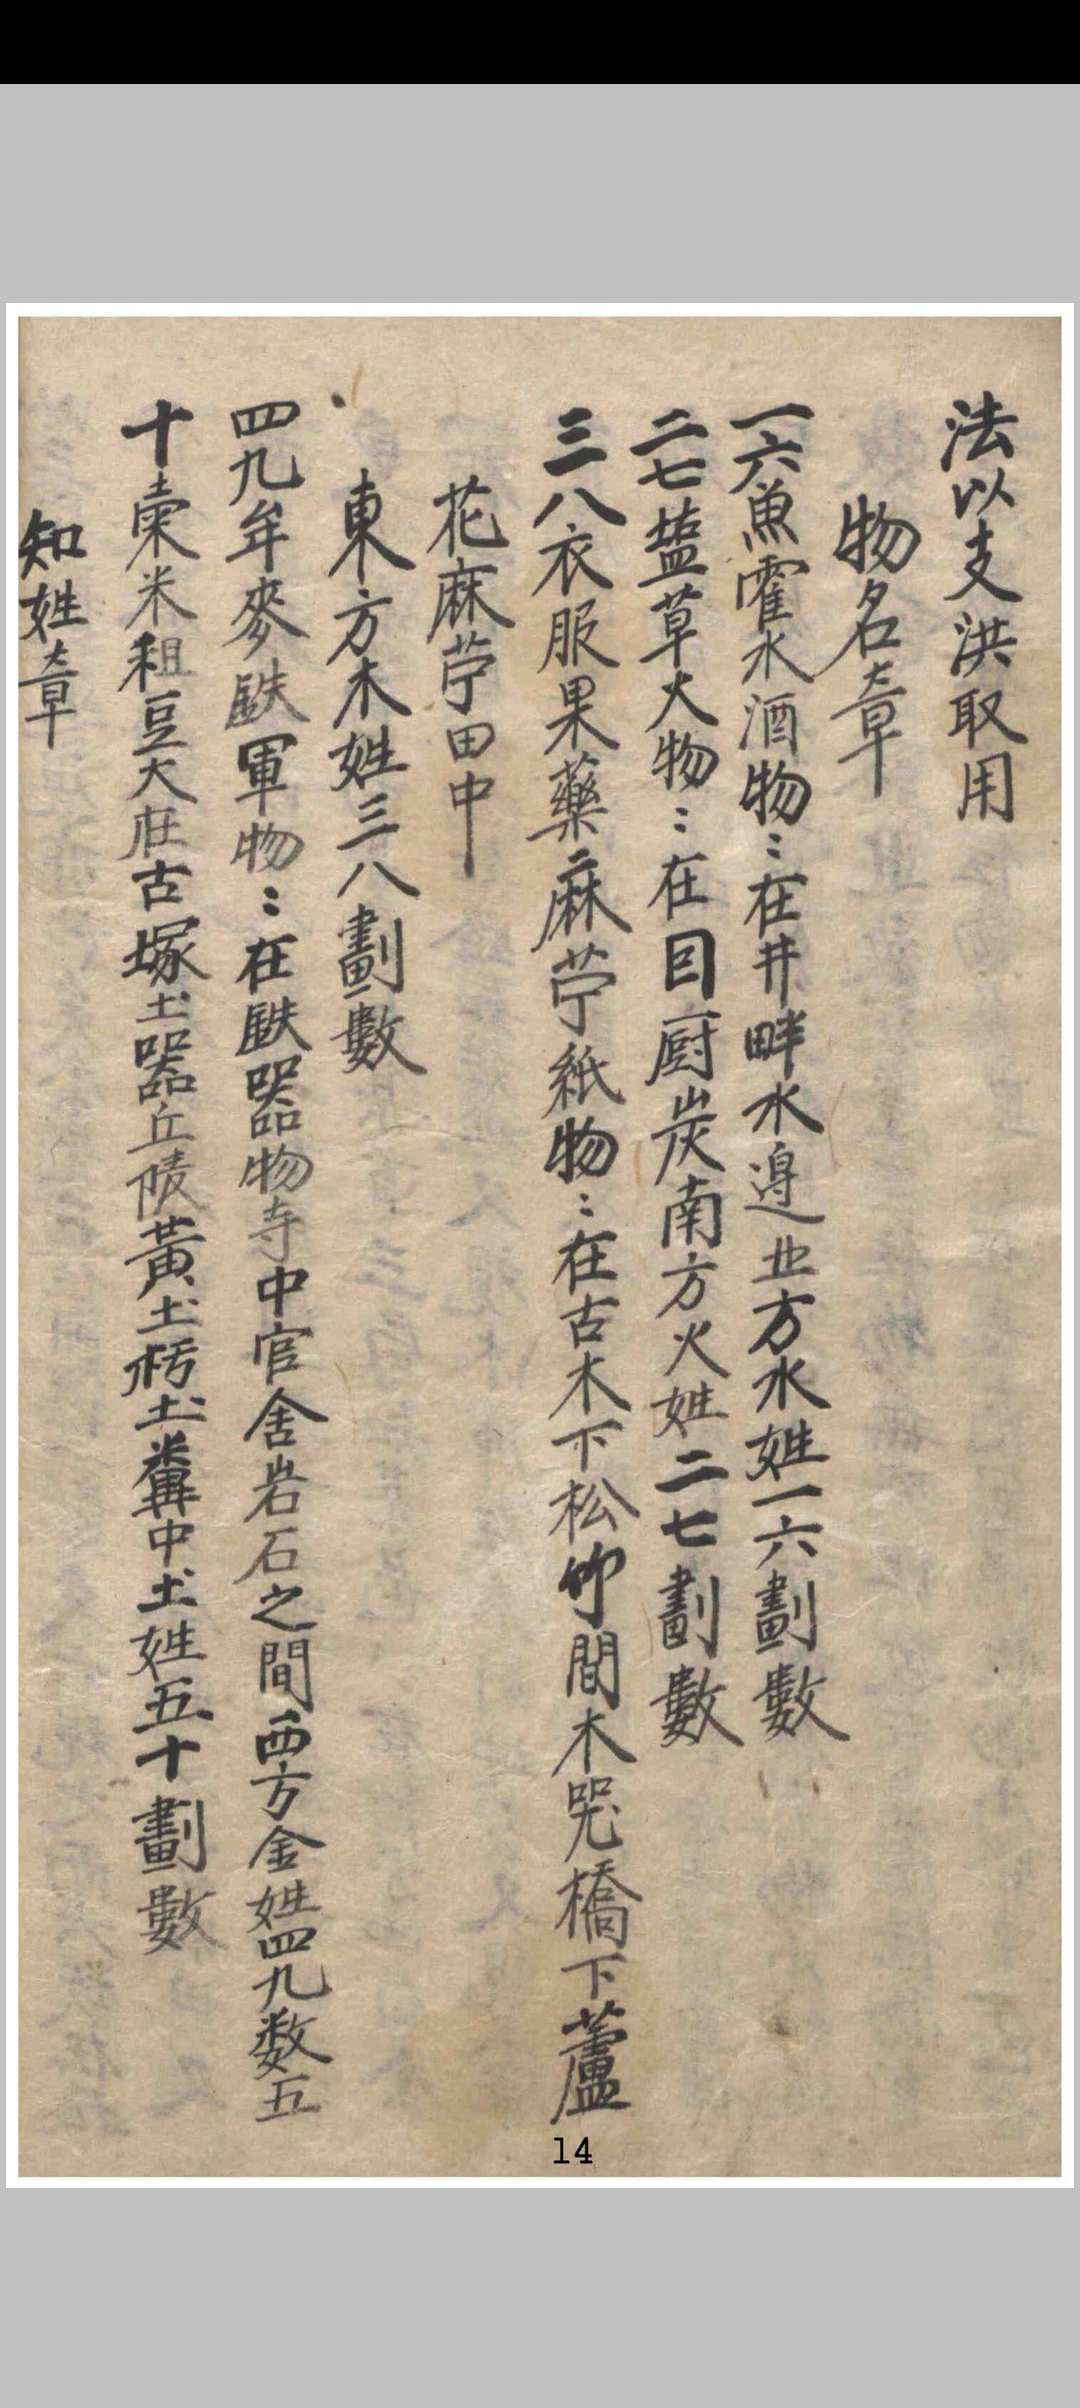 法以支洪取用
物名章
一六魚霍水酒物〻在井畔水邉北方水姓一六劃數
二七塩草火物〻在囙厨炭南方火姓二七劃數
三八衣服果藥麻苧紙物〻在古木下松竹間木哭橋下蘆
花麻苧田中
東方木姓三八劃數
四九牟麥鉄軍物〻在鉄器物寺中官舍岩石之間西方金姓四九数五
十粟米租豆大庄古塚土器丘陵黃土朽土糞中土姓五十劃數
知姓章
14